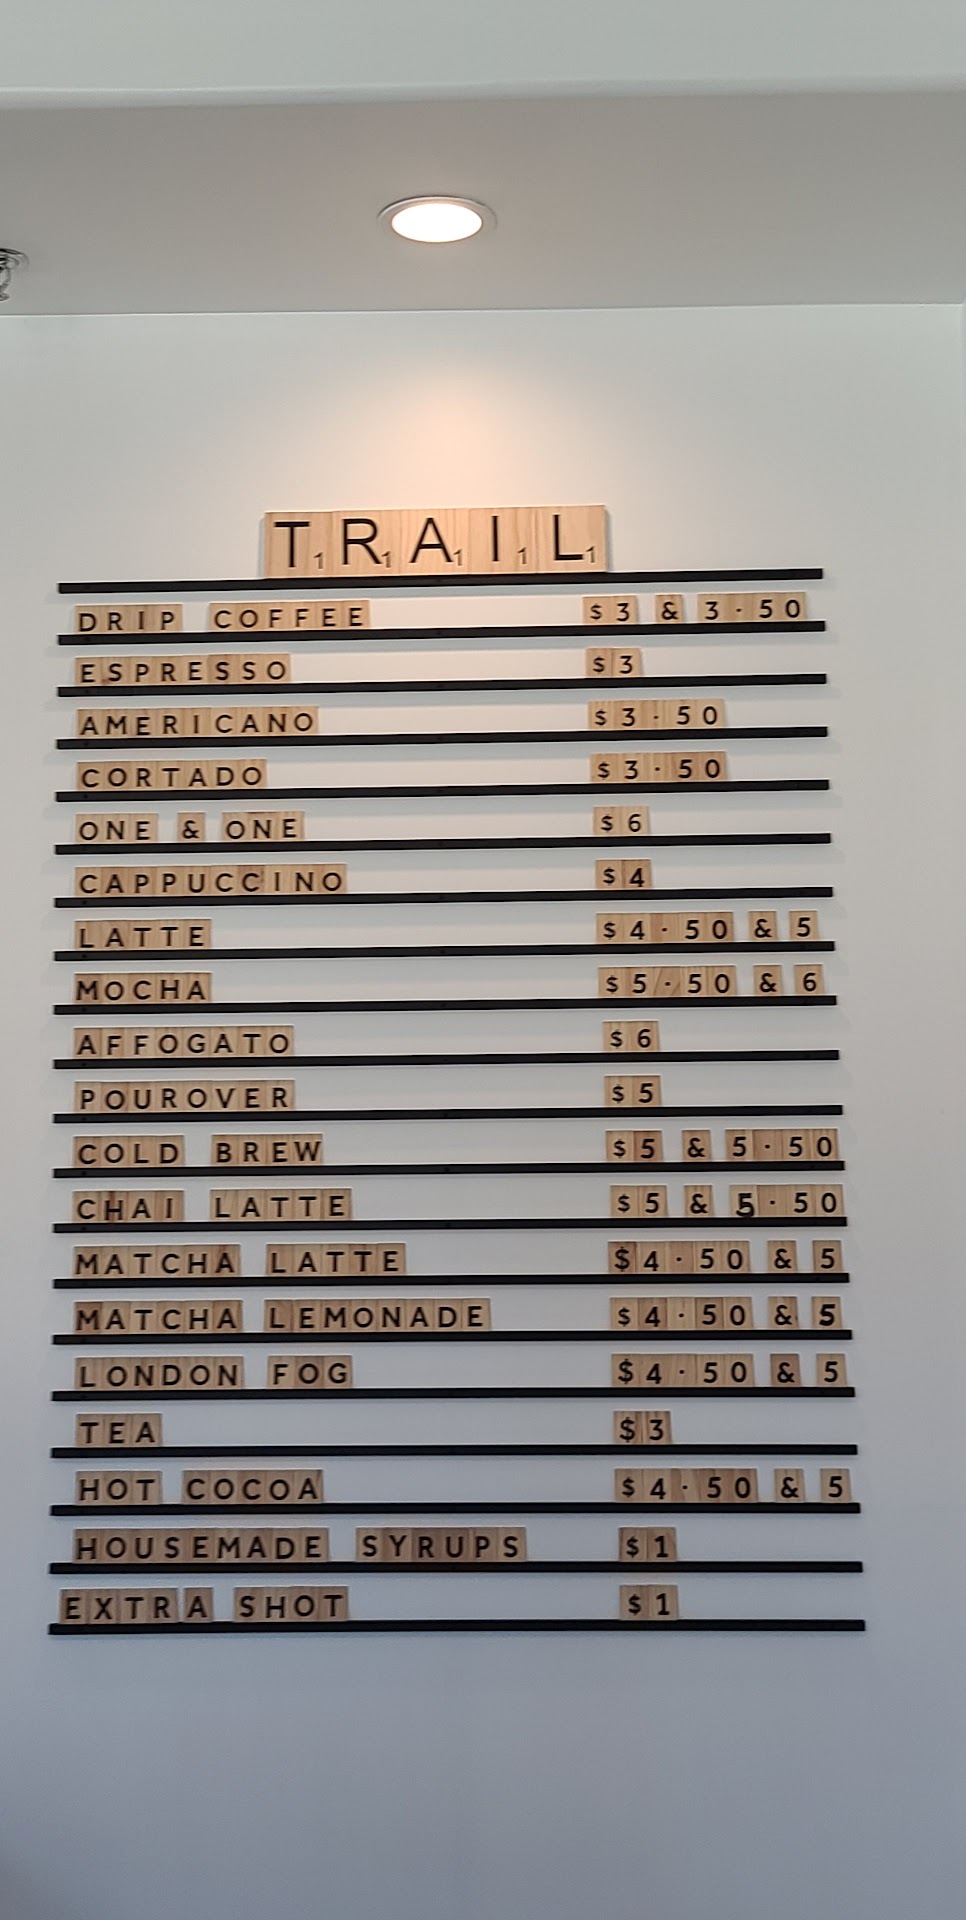 T1R1A1I1L1
DRIP COFFEE $3 & 3·50
ESPRESSO $3
AMERICANO $3·50
CORTADO $3·50
ONE & ONE $6
CAPPUCCINO $4
LATTE $4·50 & 5
MOCHA $5·50 & 6
AFFOGATO $6
POUROVER $5
COLD BREW $5 & 5·50
CHAI LATTE $5 & 5·50
MATCHA LATTE $4·50 & 5
MATCHA LEMONADE $4·50 & 5
LONDON FOG $4·50 & 5
TEA $3
HOT COCOA $4·50 & 5
HOUSEMADE SYRUPS $1
EXTRA SHOT $1